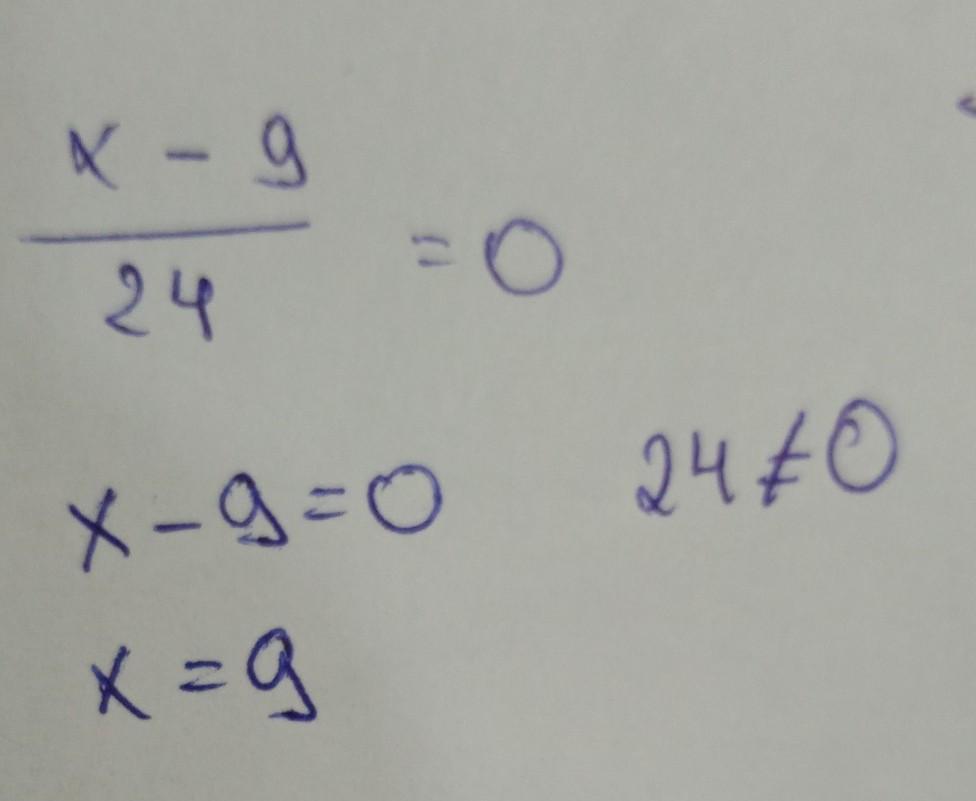 x - 9
24
= 0
x - 9 = 0
24 ≠ 0
x = 9